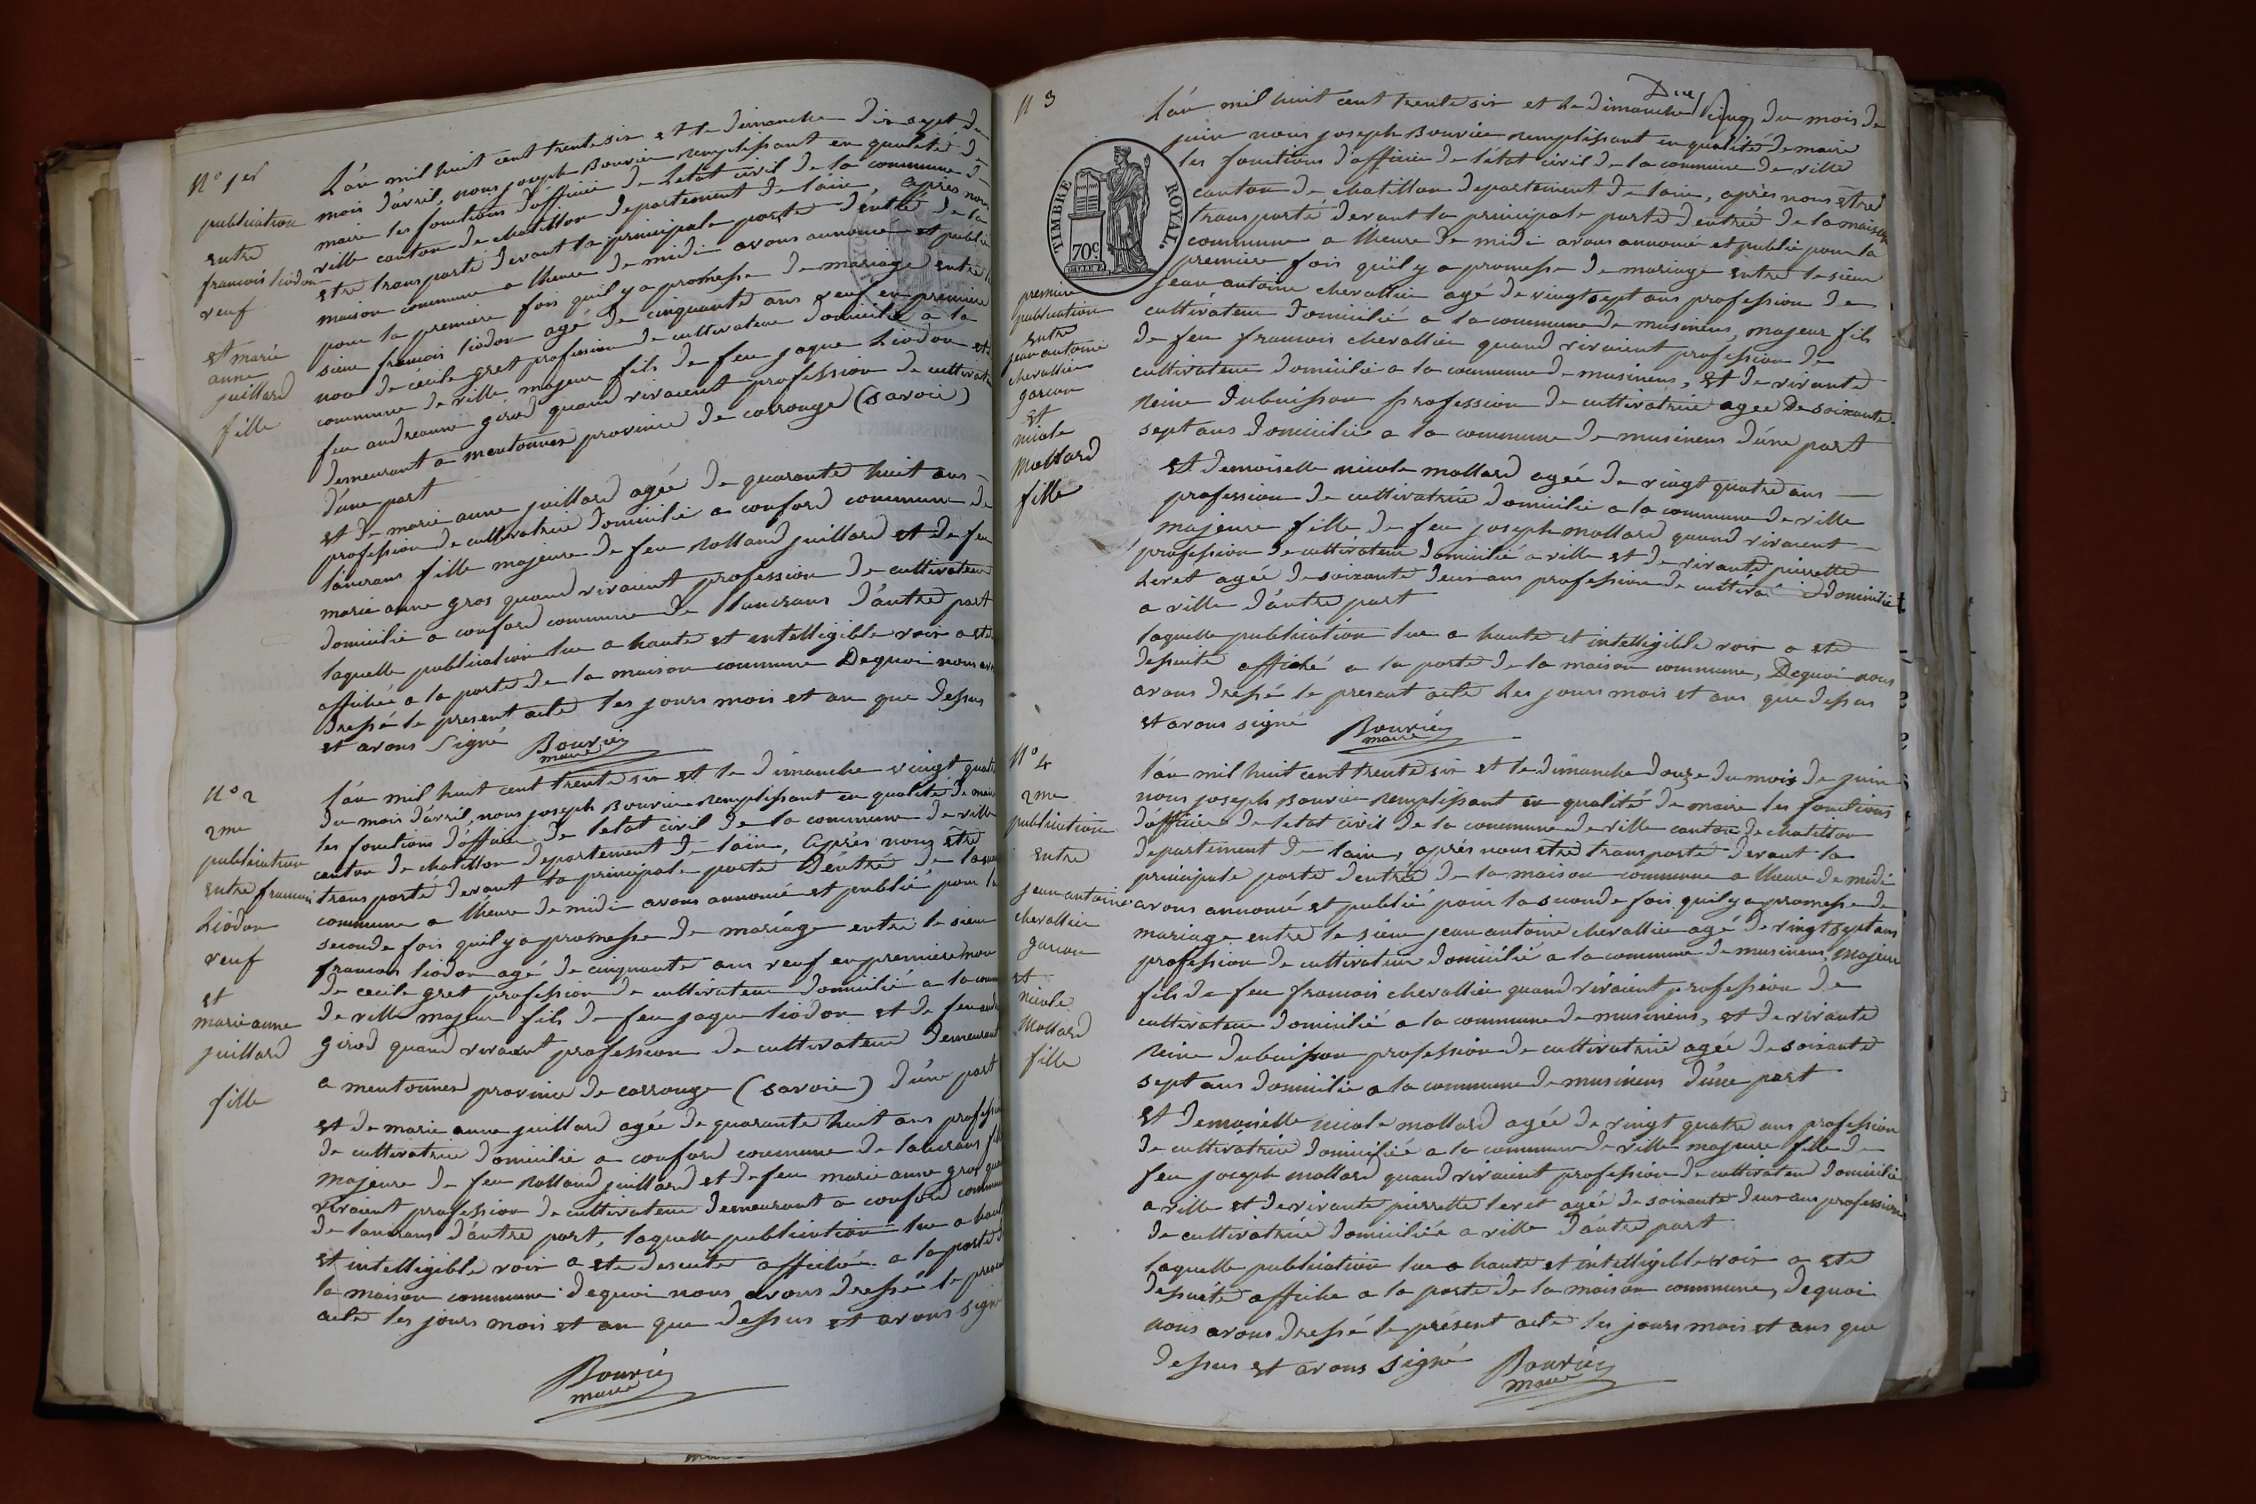 N° 1er
publication
entre
francois liodon
veuf
et marie
anne
juillard
fille
L'án mil huit cent trente six et le dimanche dix sept du
mois d'avril, nous joseph Bouvier remplissant en qualité de
maire les fonctions d'officier de l'etat civil de la commune de
ville canton de chatillon departement de l'ain, après nous
etre transporté devant la principale porte d'entrée de la
maison commune a l'heure de midi avons annoncé et publié
pour la premiere fois quil y a promesse de mariage entre le
sieur francois liodon agé de cinquante ans veuf en premiere
noce de cécile gret profession de cultivateur domicilié a la
commune de ville majeur fils de feu jaque Liodon et de
feu andreanne girod quand vivaient profession de cultivateur
demeurant a mentonnex province de carrouge (savoie)
d'une part
et de marie anne juillard agée de quarante huit ans
profession de cultivatrice domicilié a conford commune de
lancrans fille majeure de feu Rolland juillard et de feu
marie anne gros quand vivaient profession de cultivateur
domicilié a conford commune de lancrans d'autre part
laquelle publication lue a haute et intelligible voix a eté
affichée a la porte de la maison commune Dequoi nous avons
dressé le present acte les jours mois et an que dessus
et avons signé Bouvier
maire
N° 2
2me
publication
entre francois
Liodon
veuf
et
marie anne
juillard
fille
l'án mil huit cent trente six et le dimanche vingt quatre
du mois d'avril, nous joseph Bouvier remplissant en qualité de maire
les fonctions d'officier de letat civil de la commune de ville
canton de chatillon departement de l'ain, Après nous être
transporté devant la principale porte d'entrée de la maison
commune a l'heure de midi avons annoncé et publié pour la
seconde fois quil y a promesse de mariage entre le sieur
francois liodon agé de cinquante ans veuf en premiere noce
de cecile gret profession de cultivateur domicilié a la commune
de ville majeur fils de feu jaque liodon et de feu andreanne
girod quand vivaient profession de cultivateur demeurant
a mentonnex province de carrouge (savoie) d'une part
et de marie anne juillard agée de quarante huit ans profession
de cultivatrice domicilié a conford commune de lancrans fille
majeure de feu Rolland juillard et de feu marie anne gros quand
vivaient profession de cultivateur demeurant a conford commune
de lancrans d'autre part, laquelle publication lue a haute
et intelligible voix a eté desuite affichée a la porte de
la maison commune dequoi nous avons dressé le present
acte les jours mois et an que dessus et avons signé
Bouvier
maire
N 3
TIMBRE ROYAL.
70c
premiere
publication
entre
jean antoine
chevallier
garcon
et
nicole
Mollard
fille
L'án mil huit cent trente six et le dimanche cinq du mois de
juin nous joseph Bouvier remplissant en qualité de maire
les fonctions d'officier de l'état civil de la commune de ville
canton de chatillon departement de l'ain, après nous être
transporté devant la principale porte d'entrée de la maison
commune a l'heure de midi avons annoncé et publié pour la
premiere fois qu'il y a promesse de mariage entre le sieur
jean antoine chevallier agé de vingt sept ans profession de
cultivateur domicilié a la commune de musinens, majeur fils
de feu francois chevallier quand vivaient profession de
cultivateur domicilié a la commune de musinens, et de vivante
Reine dubuisson profession de cultivatrice agee De soixante
sept ans domicilié a la commune de musinens d'une part
et demoiselle nicole mollard agée de vingt quatre ans
profession de cultivatrice domicilié a la commune de ville
majeure fille de feu joseph mollard quand vivaient
profession de cultivateur domicilié a ville et de vivante pierrette
Levet agée de soixante deux ans profession de domicilié
a ville d'autre part
laquelle publication lue a haute et intelligible voix a eté
desuite affiché a la porte de la maison commune, Dequoi nous
avons dressé le present acte Les jours mois et ans que dessus
et avons signé Bouvier
maire
N° 4
2me
publication
entre
jean antoine
chevallier
garcon
et
nicole
Mollard
fille
l'án mil huit cent trente six et le dimanche douze du mois de juin
nous joseph Bouvier remplissant en qualité de maire les fonctions
d'officier de letat civil de la commune de ville canton de chatillon
departement de l'ain, après nous etre transporté devant la
principale porte d'entrée de la maison commune a l'heure de midi
avons annoncé et publié pour la seconde fois quil y a promesse de
mariage entre le sieur jean antoine chevallier agé de vingt sept ans
profession de cultivateur domicilié a la commune de musinens, majeur
fils de feu francois chevallier quand vivaient profession de
cultivateur domicilié a la commune de musinens, et de vivante
Reine dubuisson profession de cultivatrice agée de soixante
sept ans domicilie a la commune de musinens d'une part
et demoiselle nicole mollard agée de vingt quatre ans profession
de cultivatrice domiciliée a la commune de ville majeure fille de
feu joseph mollard quand vivaient profession de cultivateur domicilié
a ville et de vivante pierrette levet agée de soixante deux ans profession
de cultivatrice domiciliée a ville d'autre part
laquelle publication lue a haute et intelligible voix a eté
desuite affiche a la porte de la maison commune, dequoi
nous avons dressé le présent acte les jours mois et ans que
dessus et avons signé Bouvier
maire